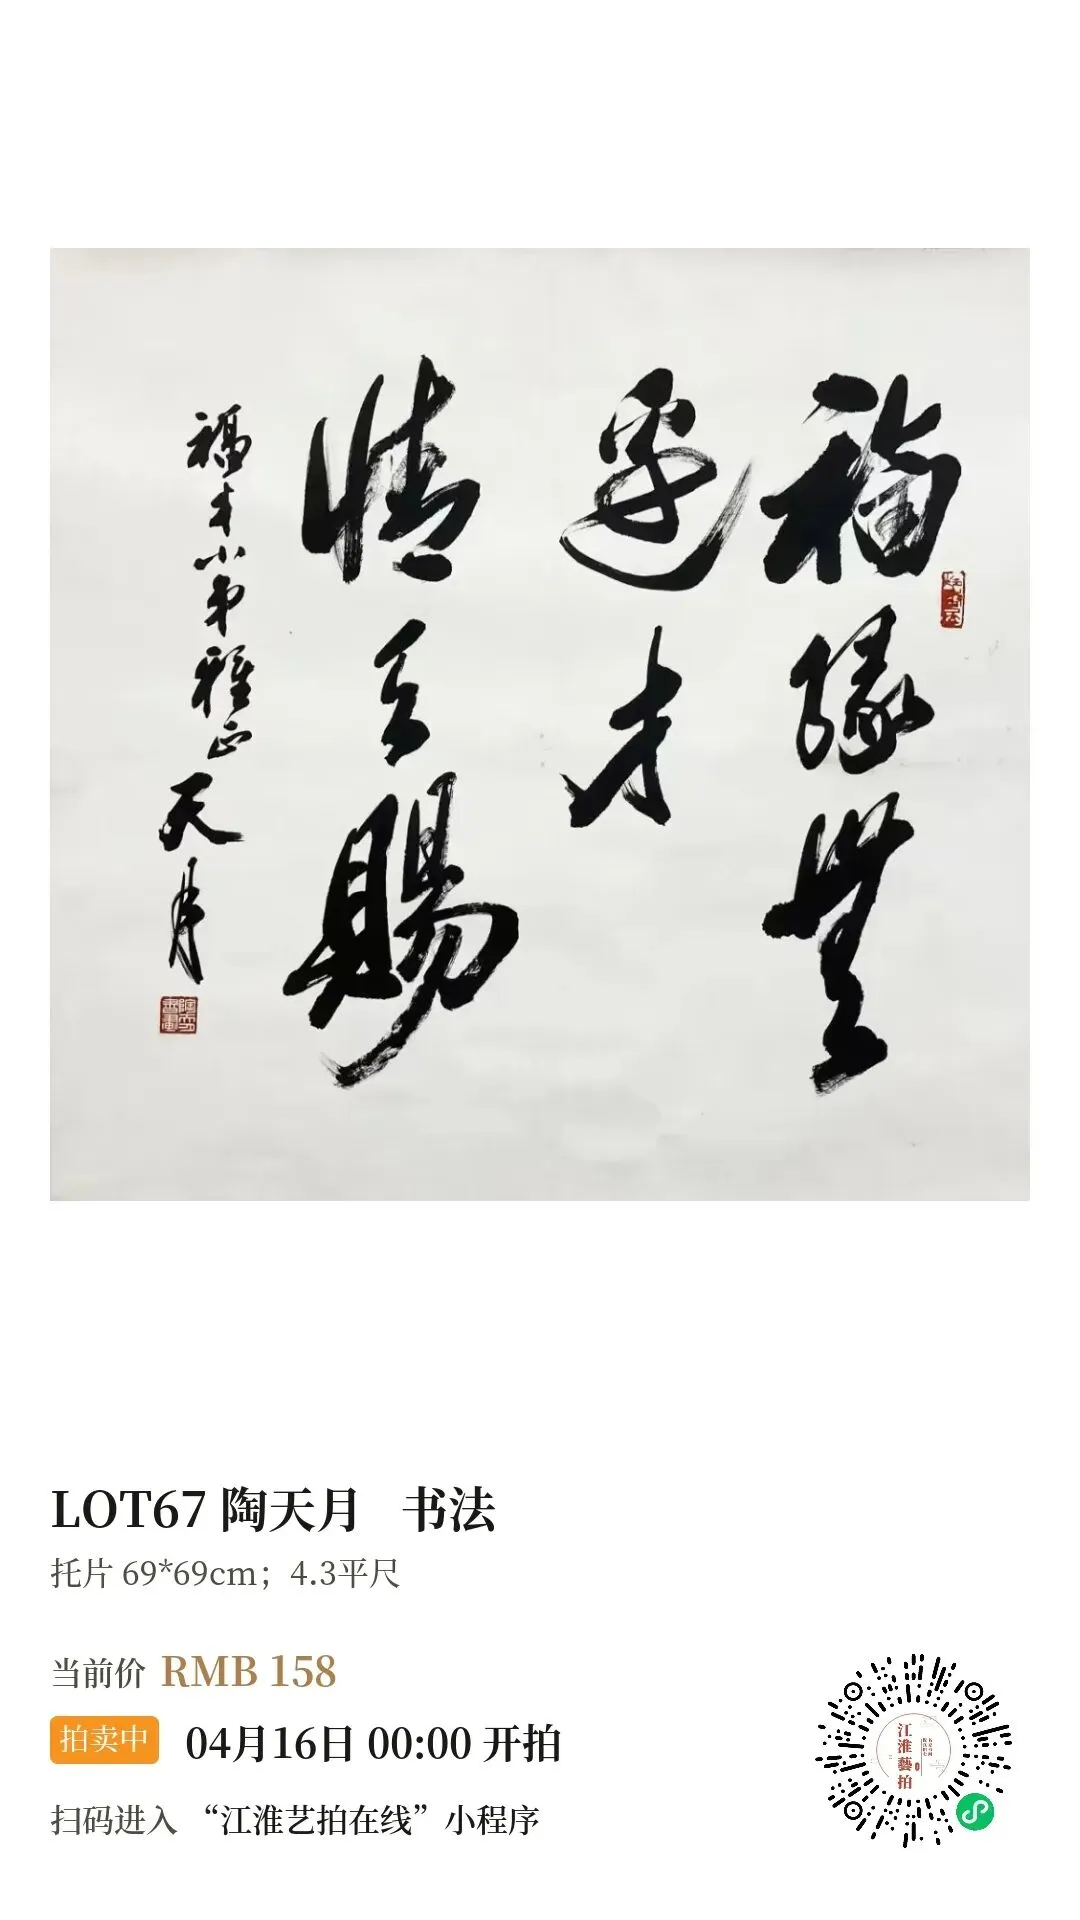 福緣無
邊才
情天賜
福才小弟雅正
天月
LOT67 陶天月 书法
托片 69*69cm；4.3平尺
当前价 RMB 158
拍卖中 04月16日 00:00 开拍
扫码进入 “江淮艺拍在线”小程序
江淮藝拍